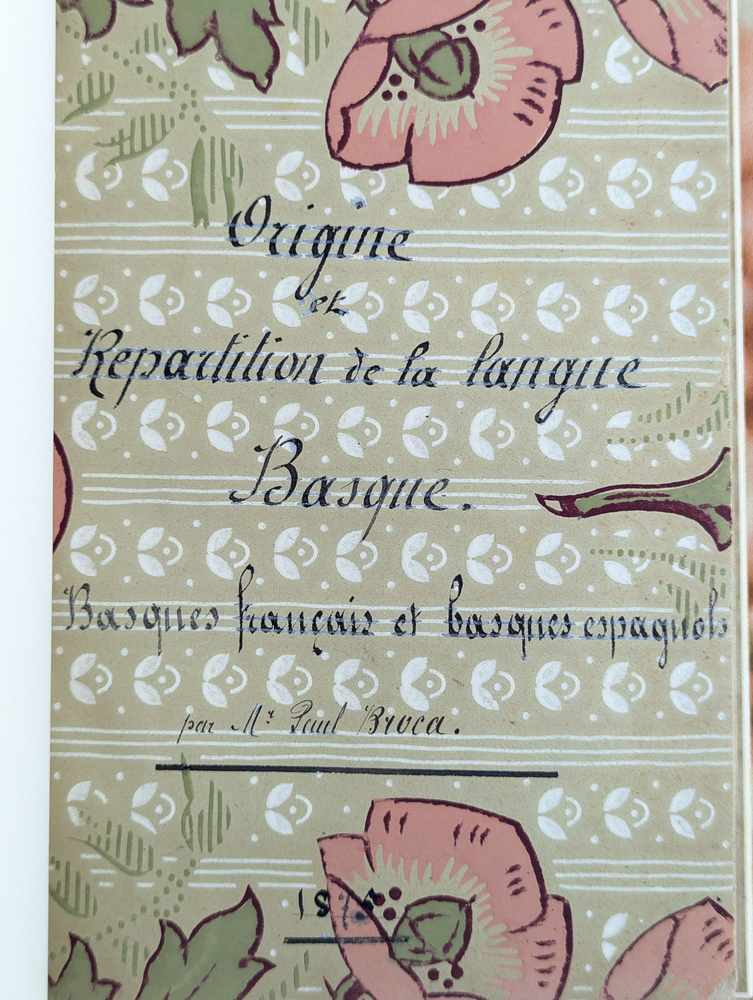 Origine
et
Repartition de la langue
Basque.
Basques français et basques espagnols
par Mr Paul Broca.
1875